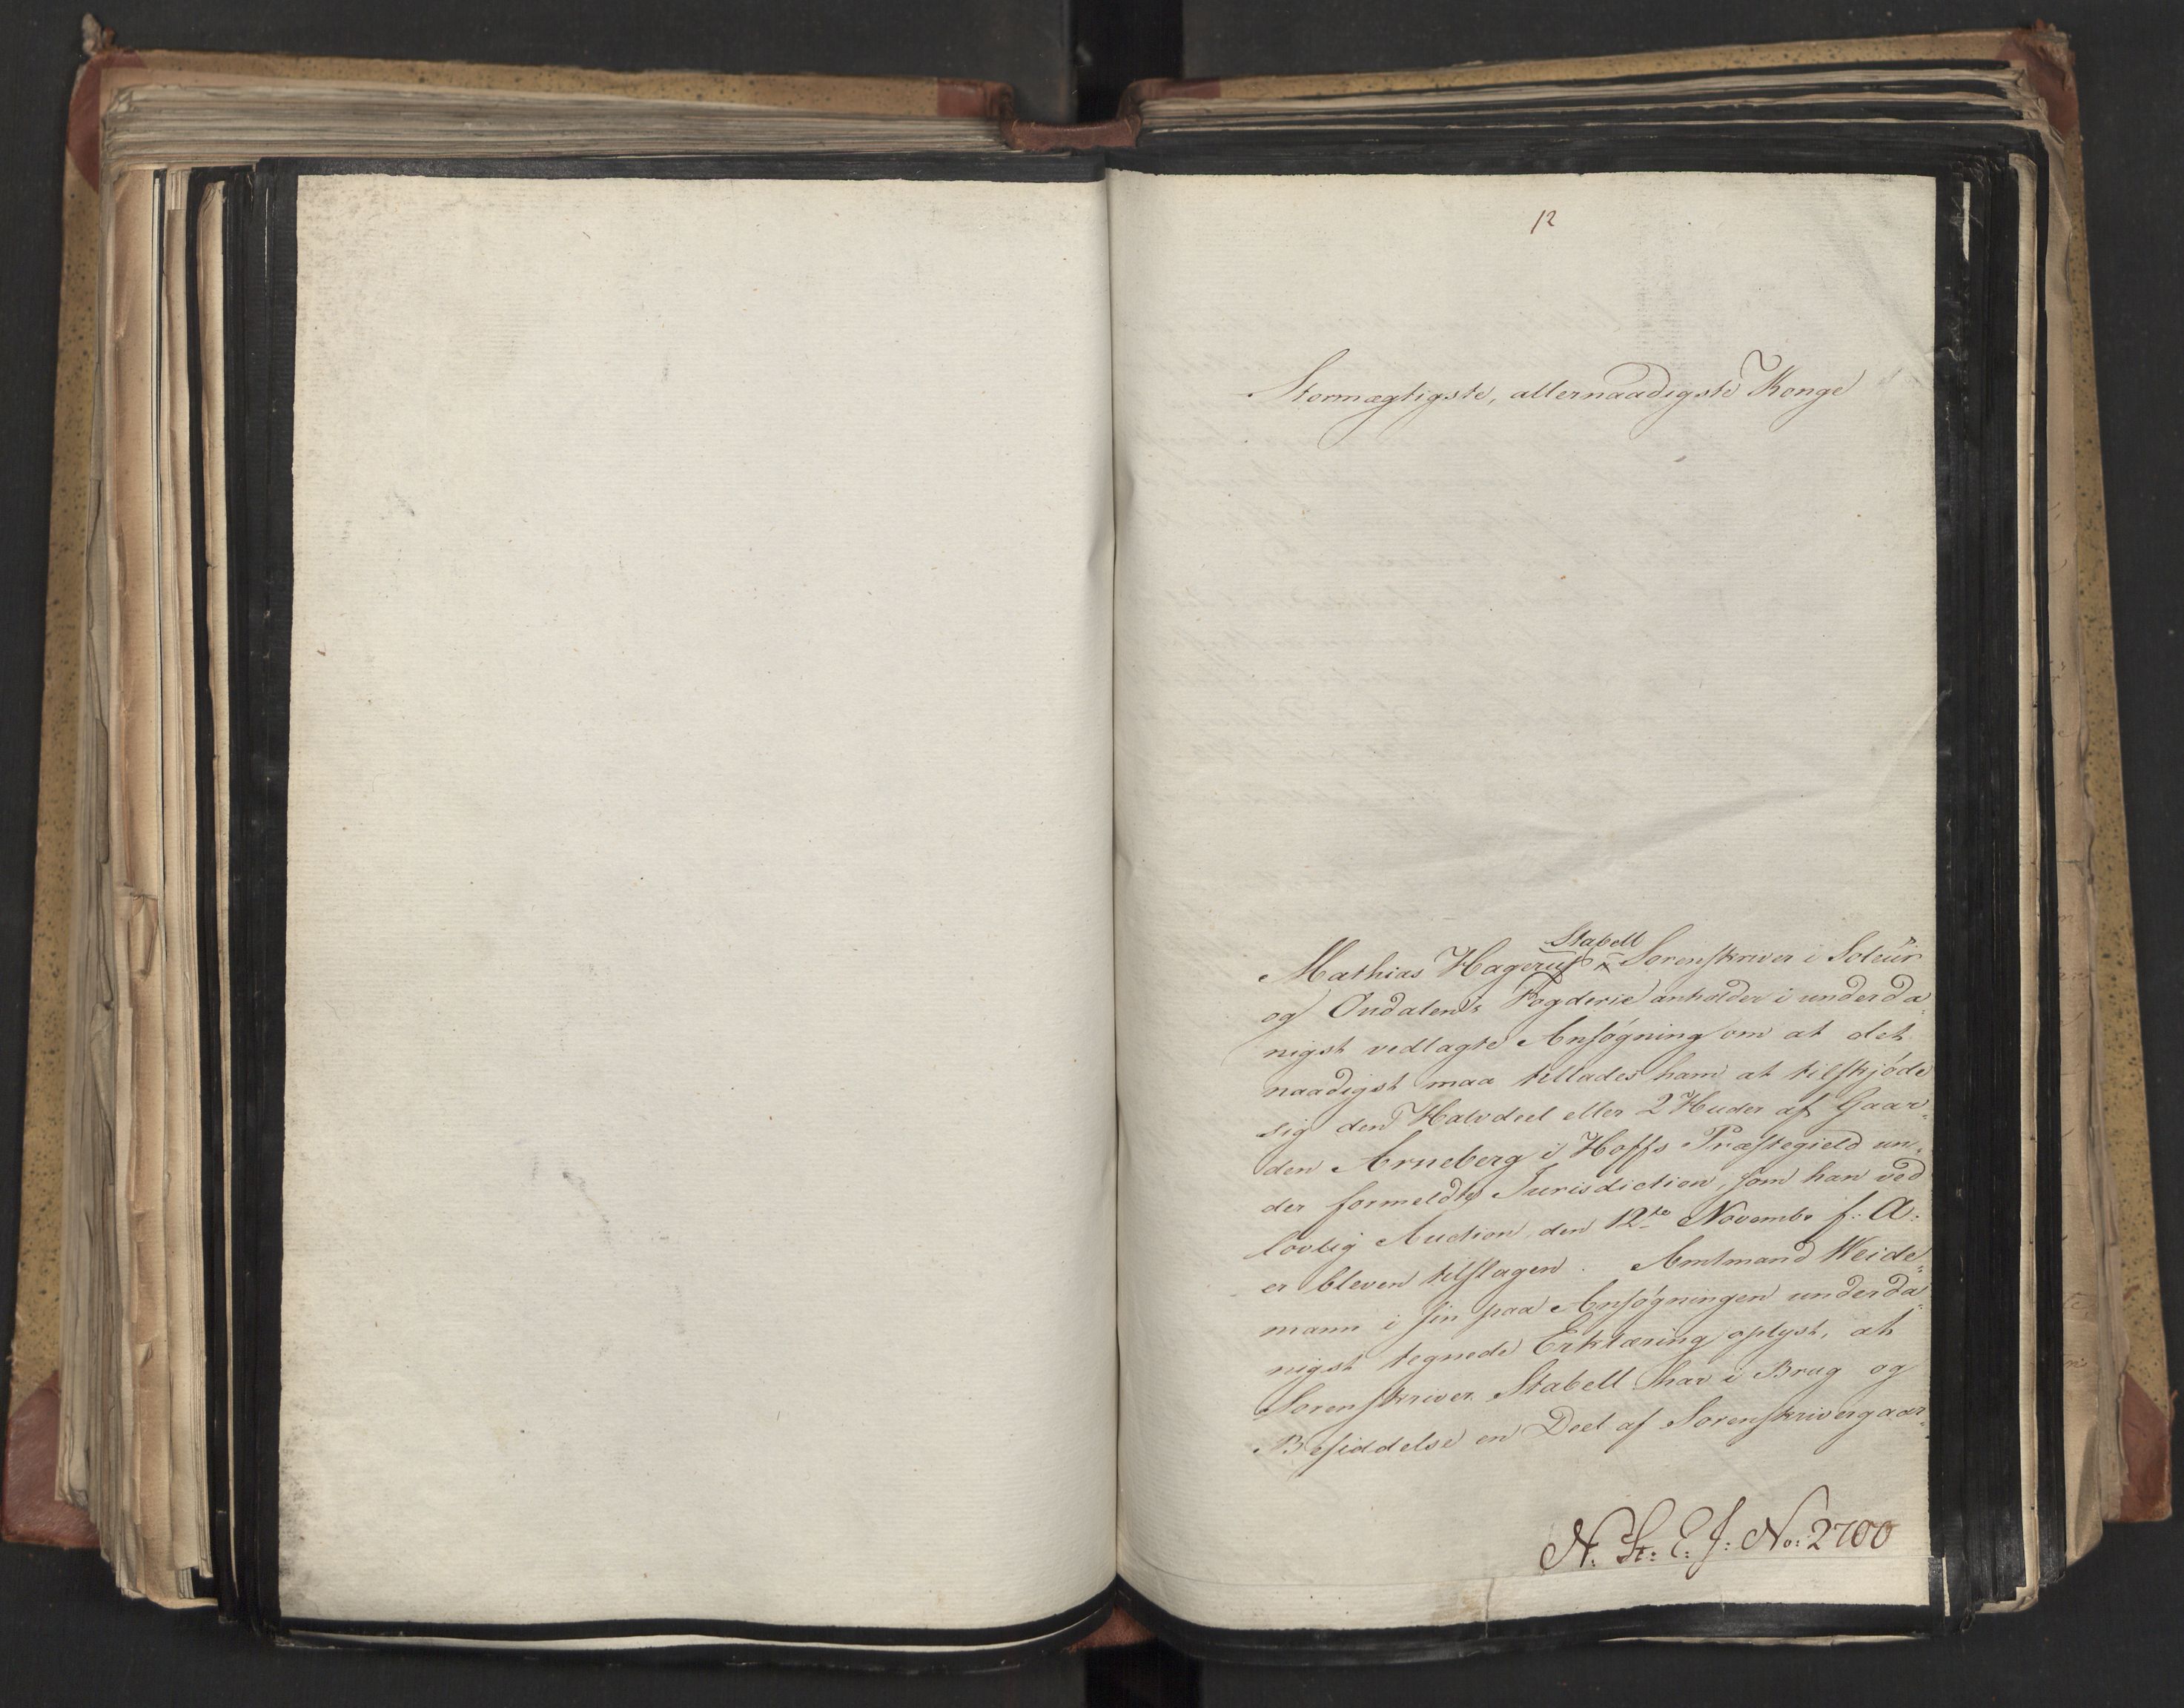 12
Stormægtigste, allernaadigste Konge
Stabell
Mathias Hagerup × Sorenskriver i Soleür
og Oudalens Fogderie anholder i underda-
nigst vedlagte Ansøgning om at det
naadigst maa tillades ham at tilskjøde
sig den Halvdeel eller 2 Huder af Gaar-
den Arneberg i Hoffs Præstegield un-
der formeldte Jurisdiction, som han ved
lovlig Auction den 12te Novembr f: A:
er bleven tilslagen. Amtmand Weide-
mann i sin paa Ansøgningen underda-
nigst tegnede Erklæring oplyst, at
Sorenskriver Stabell har i Brug og
Besiddelse en Deel af Sorenskrivergaar-
N. St: E: J: No: 2700